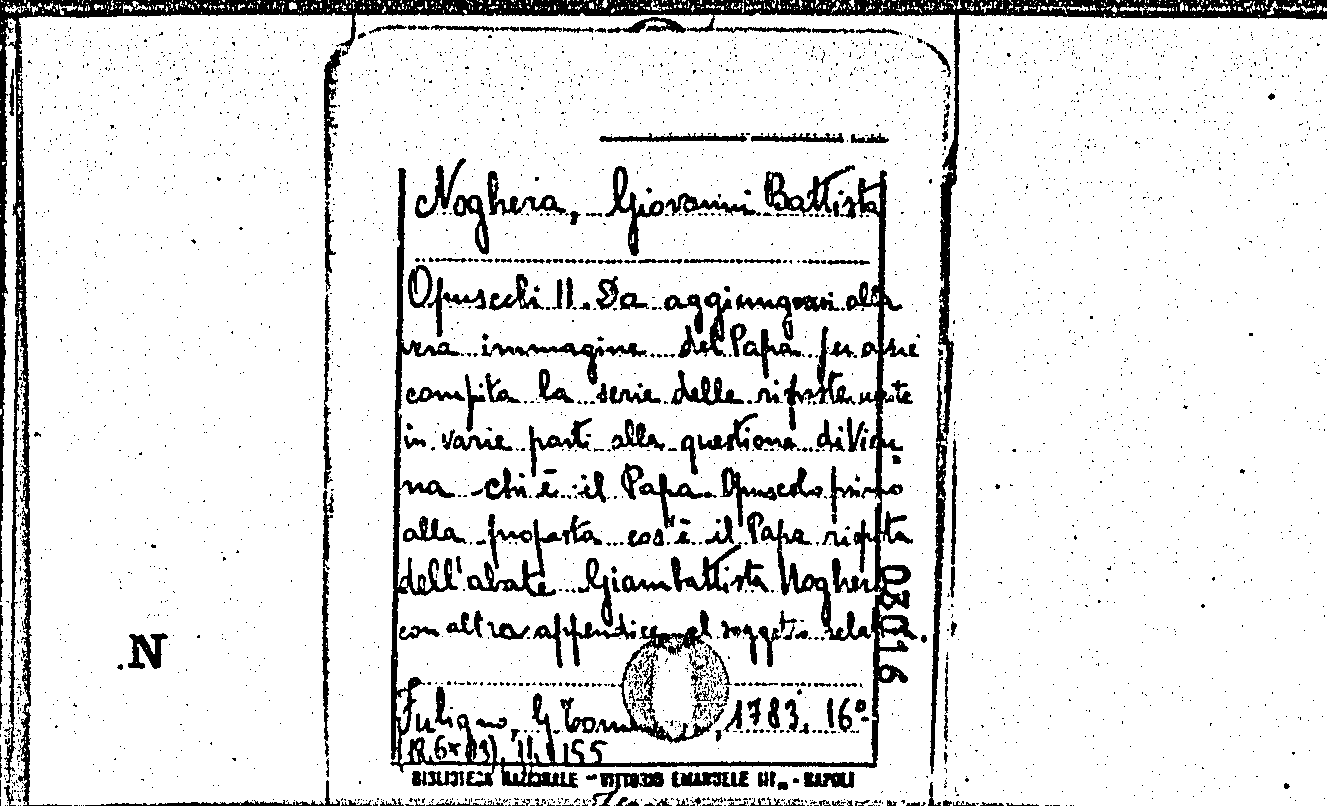 Noghera, Giovanni Battista
Opuscoli II. Da aggiungersi alla
vera immagine del Papa per
compita la serie delle risposte
in varie parti alla questione di Vien
na chi è il Papa Opuscolo primo
alla proposta cos'è il Papa rispta
dell'abate Giambattista Noghera
con altra appendice al soggetto
03016
N
Fuligno, G. Tom , 1783. 16°
155
BIBLIOTECA NAZIONALE - VITTORIO EMANUELE III. - NAPOLI